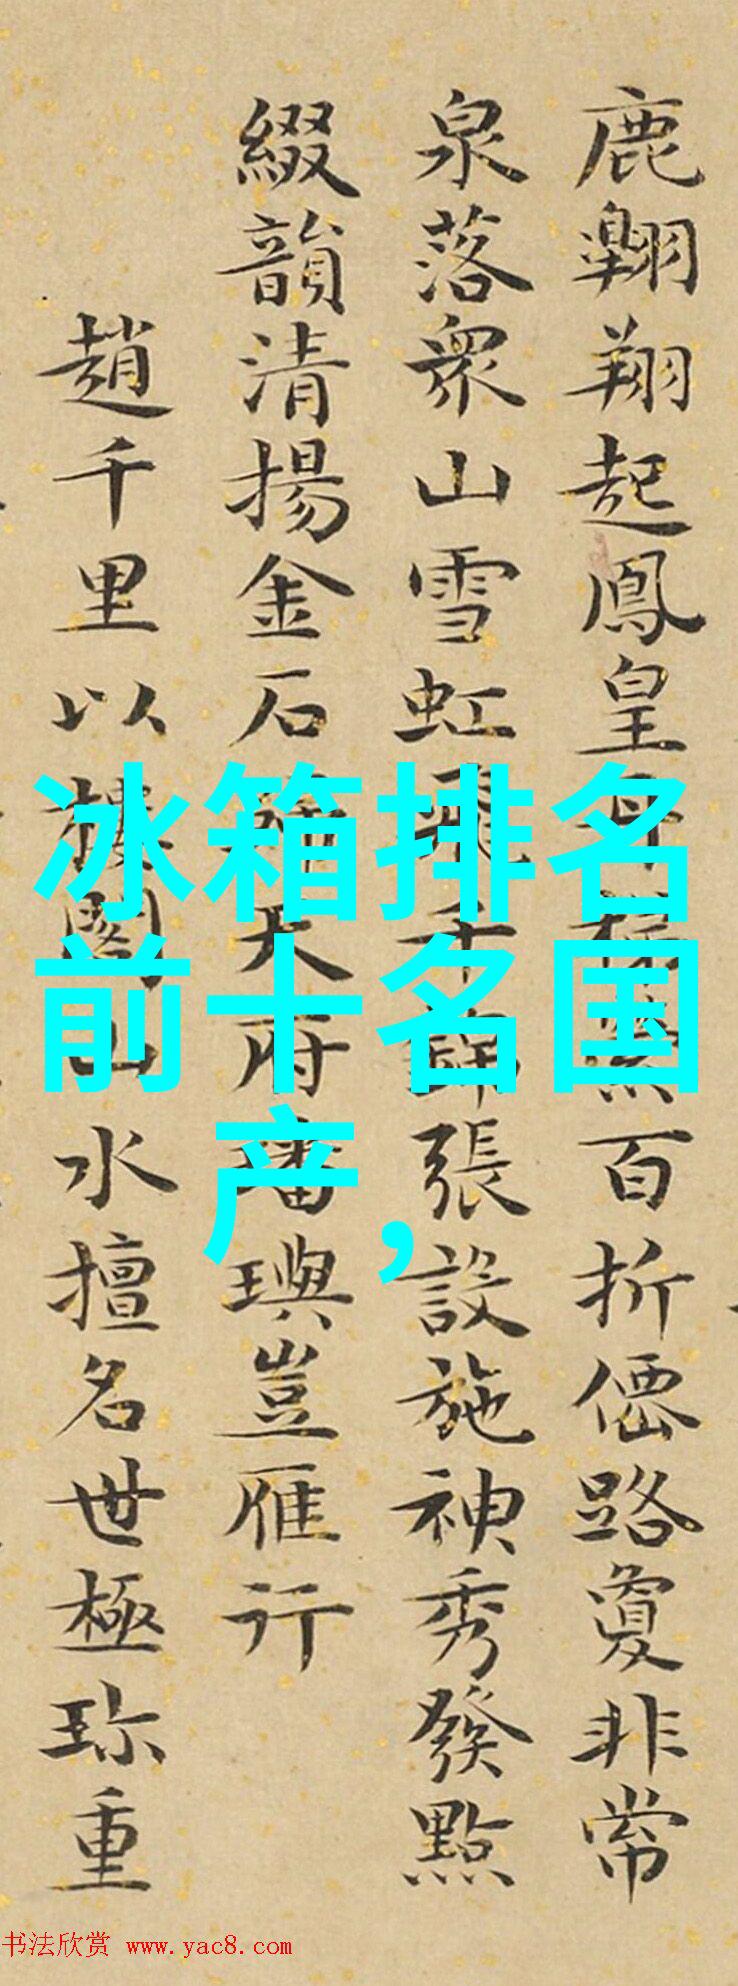 鹿翱翔起鳳皇百折僊路敻非常
泉落衆山雪虹飛千張設施神秀發點
綴韻清揚金石天府璠璵豈雁行
趙千里以樓閣山水擅名世極珎重
冰箱排名
前十名国
产,
书法欣赏 www.yac8.com